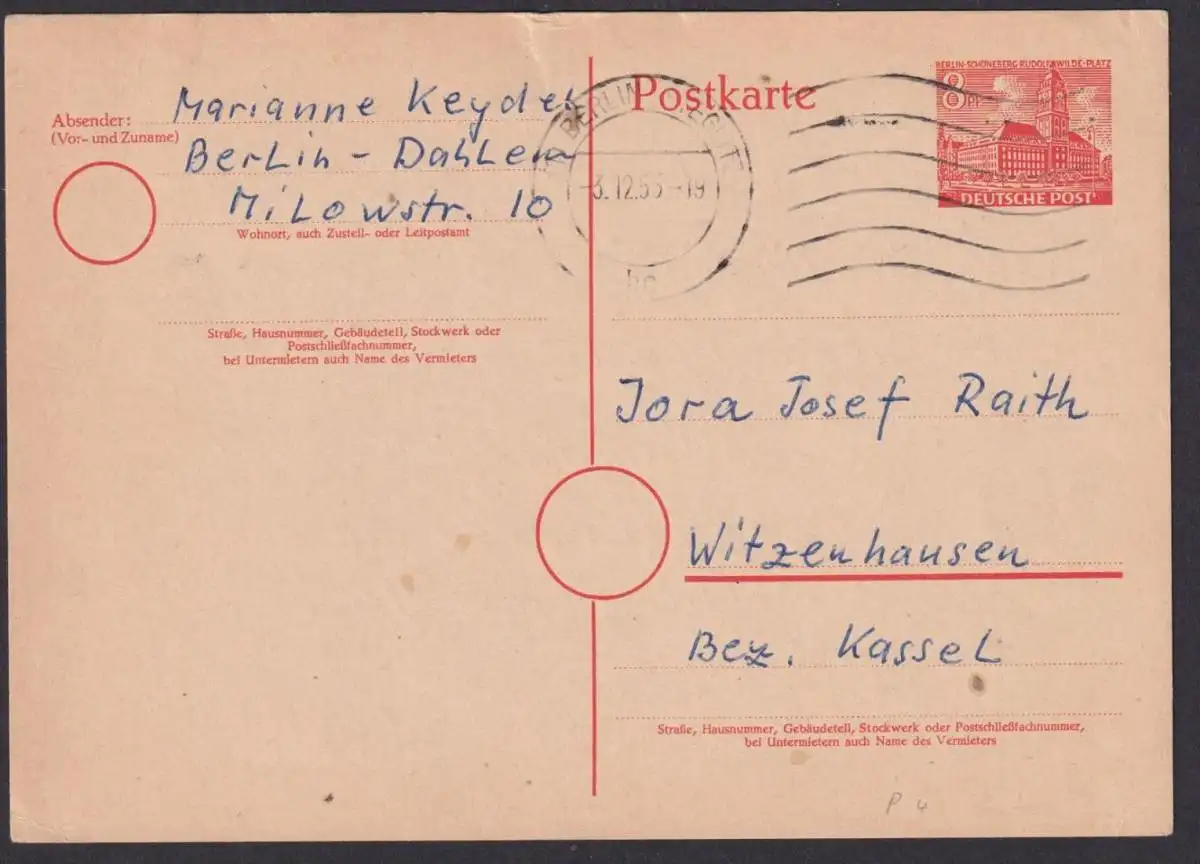 Absender:
(Vor- und Zuname)
Marianne Keydel
Berlin - Dahlem
Milowstr. 10
Wohnort, auch Zustell- oder Leitpostamt
Straße, Hausnummer, Gebäudeteil, Stockwerk oder
Postschließfachnummer,
bei Untermietern auch Name des Vermieters
Postkarte
BERLIN
-3.12.55-19
BERLIN-SCHÖNEBERG RUDOLF-WILDE-PLATZ
8
Pf
DEUTSCHE POST
Jora Josef Raith
Witzenhausen
Bez. Kassel
Straße, Hausnummer, Gebäudeteil, Stockwerk oder Postschließfachnummer,
bei Untermietern auch Name des Vermieters
P 4